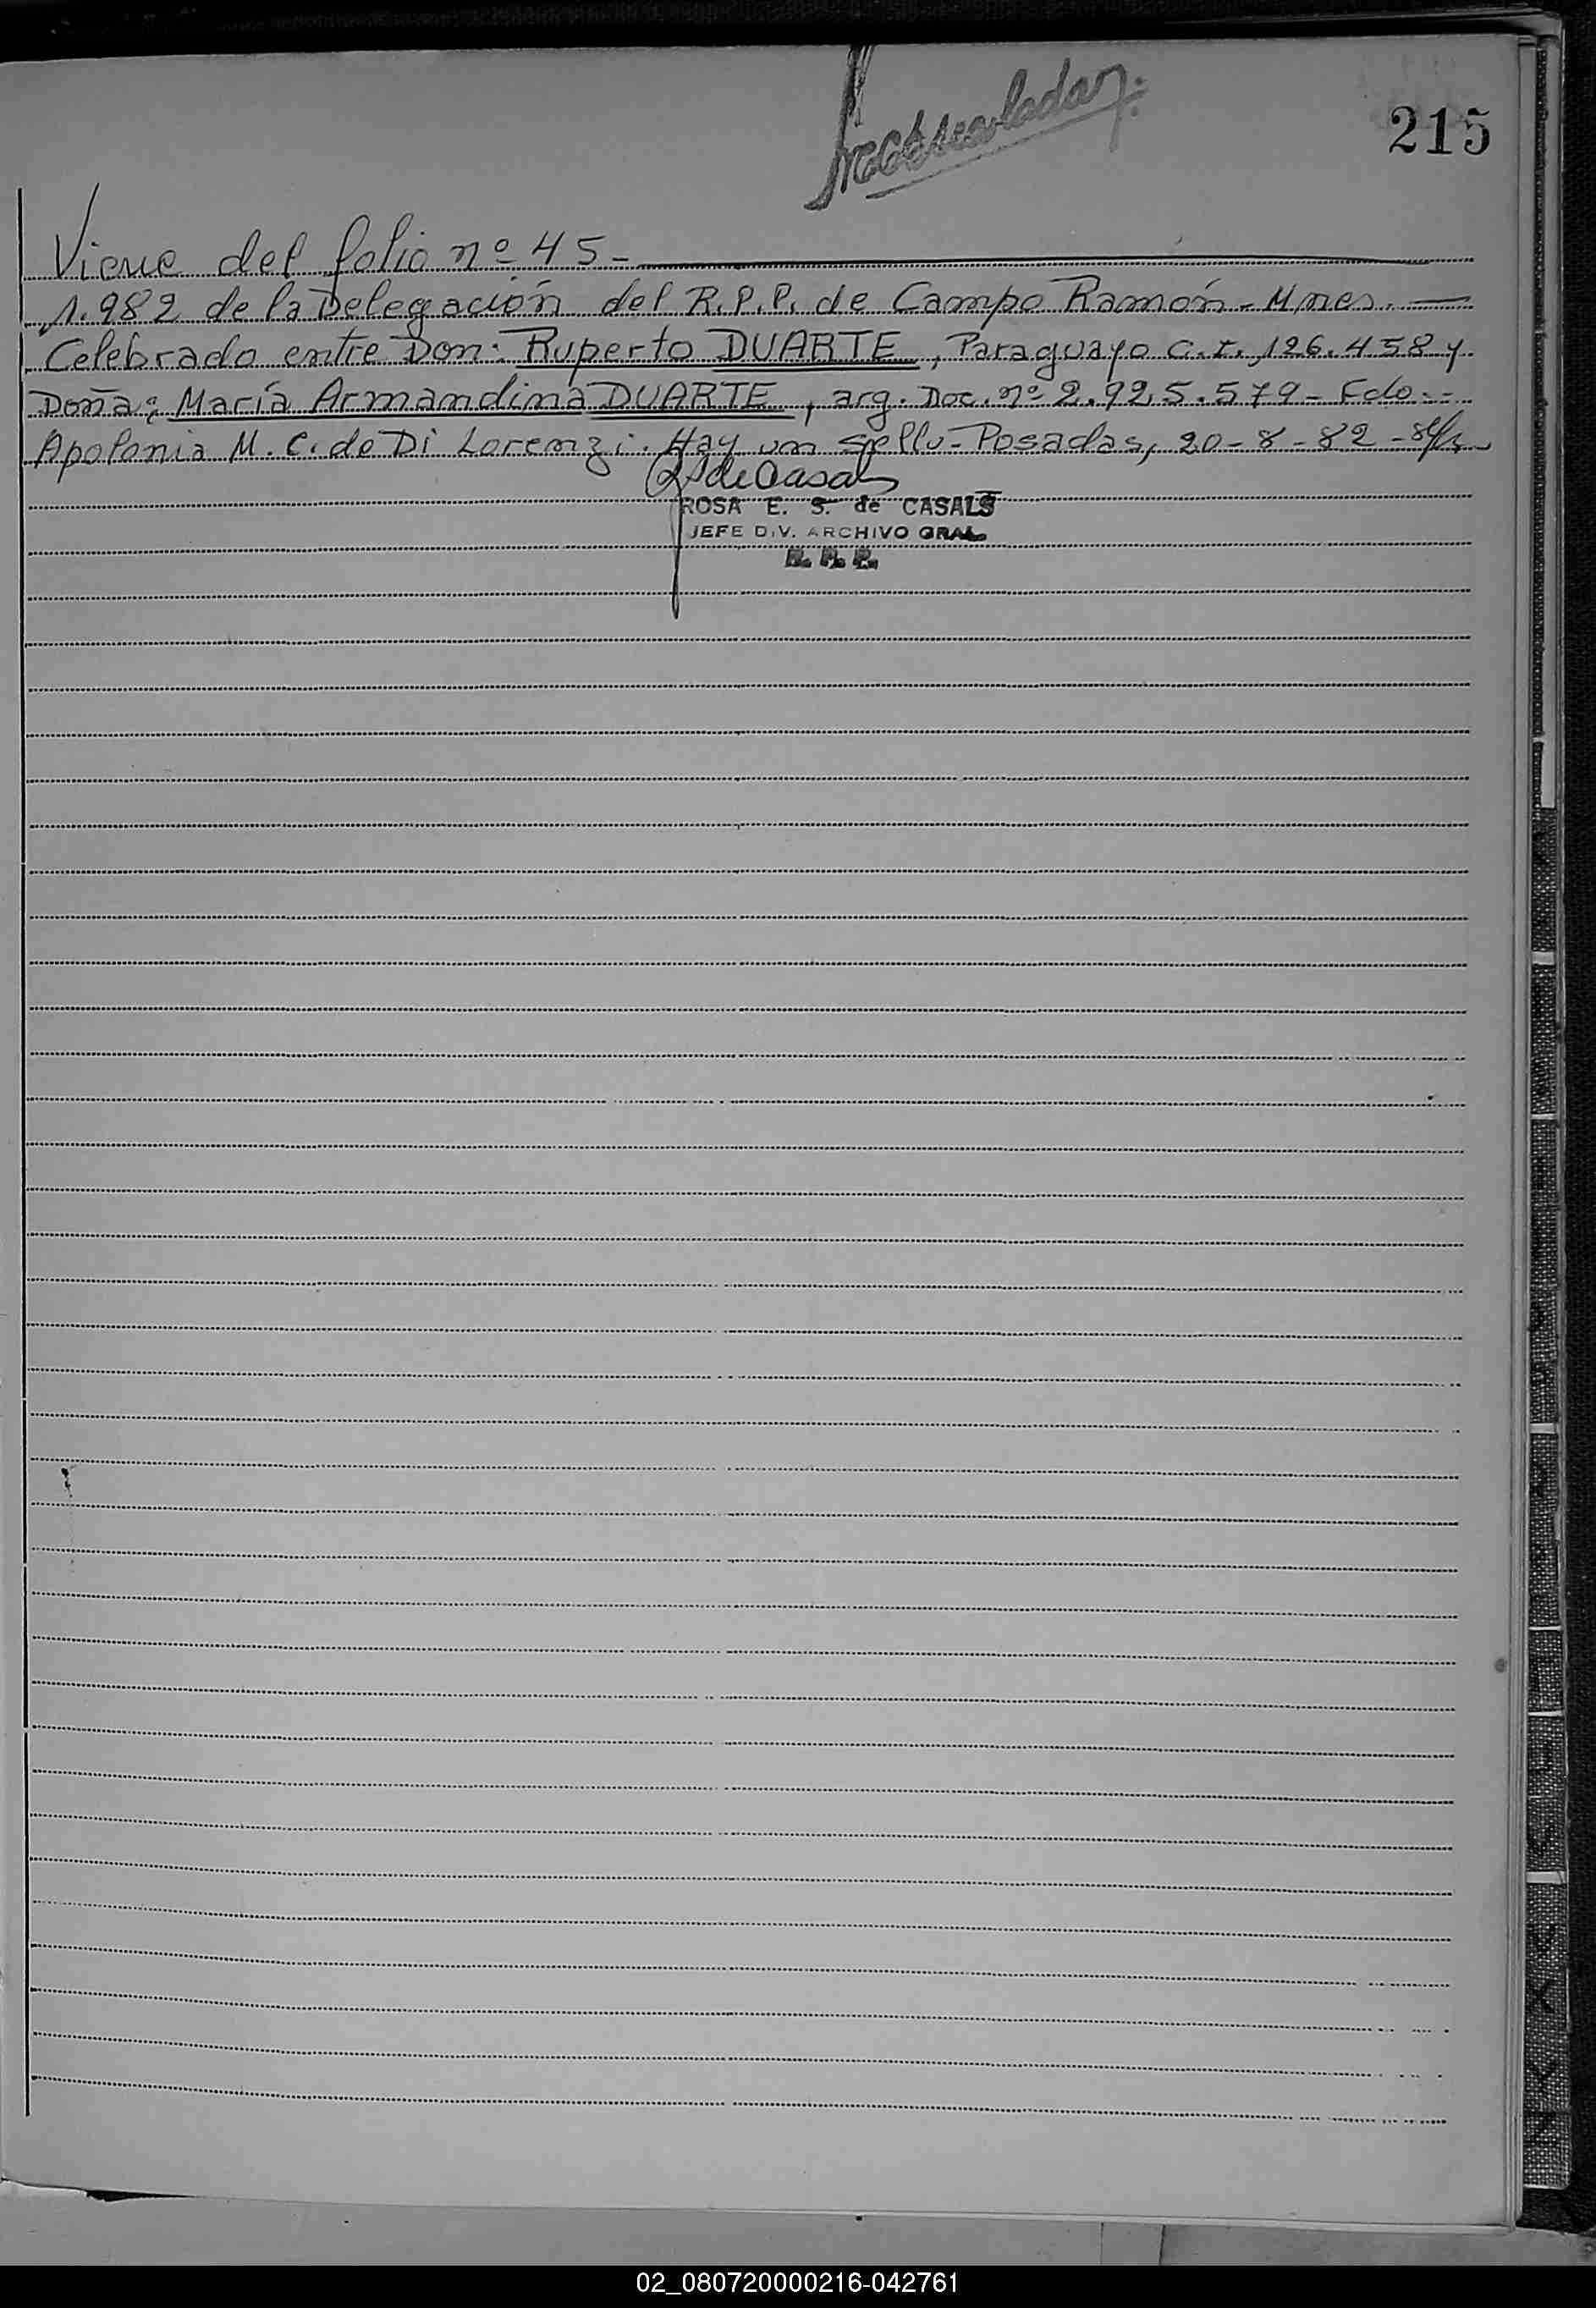 215
Viene del folio nº 45-
1.982 de la Delegación del R.P.P. de Campo Ramón - Mnes.
Celebrado entre Don: Ruperto DUARTE, Paraguayo C.I. 126.458 y
Doña: María Armandina DUARTE, arg. Doc. nº 2.925.579 - Fdo:
Apolonia M. C. de Di Lorenzi. Hay un sello - Posadas, 20-8-82
ROSA E. S. de CASALS
JEFE DIV. ARCHIVO GRAL.
R. P. P.
02_080720000216-042761